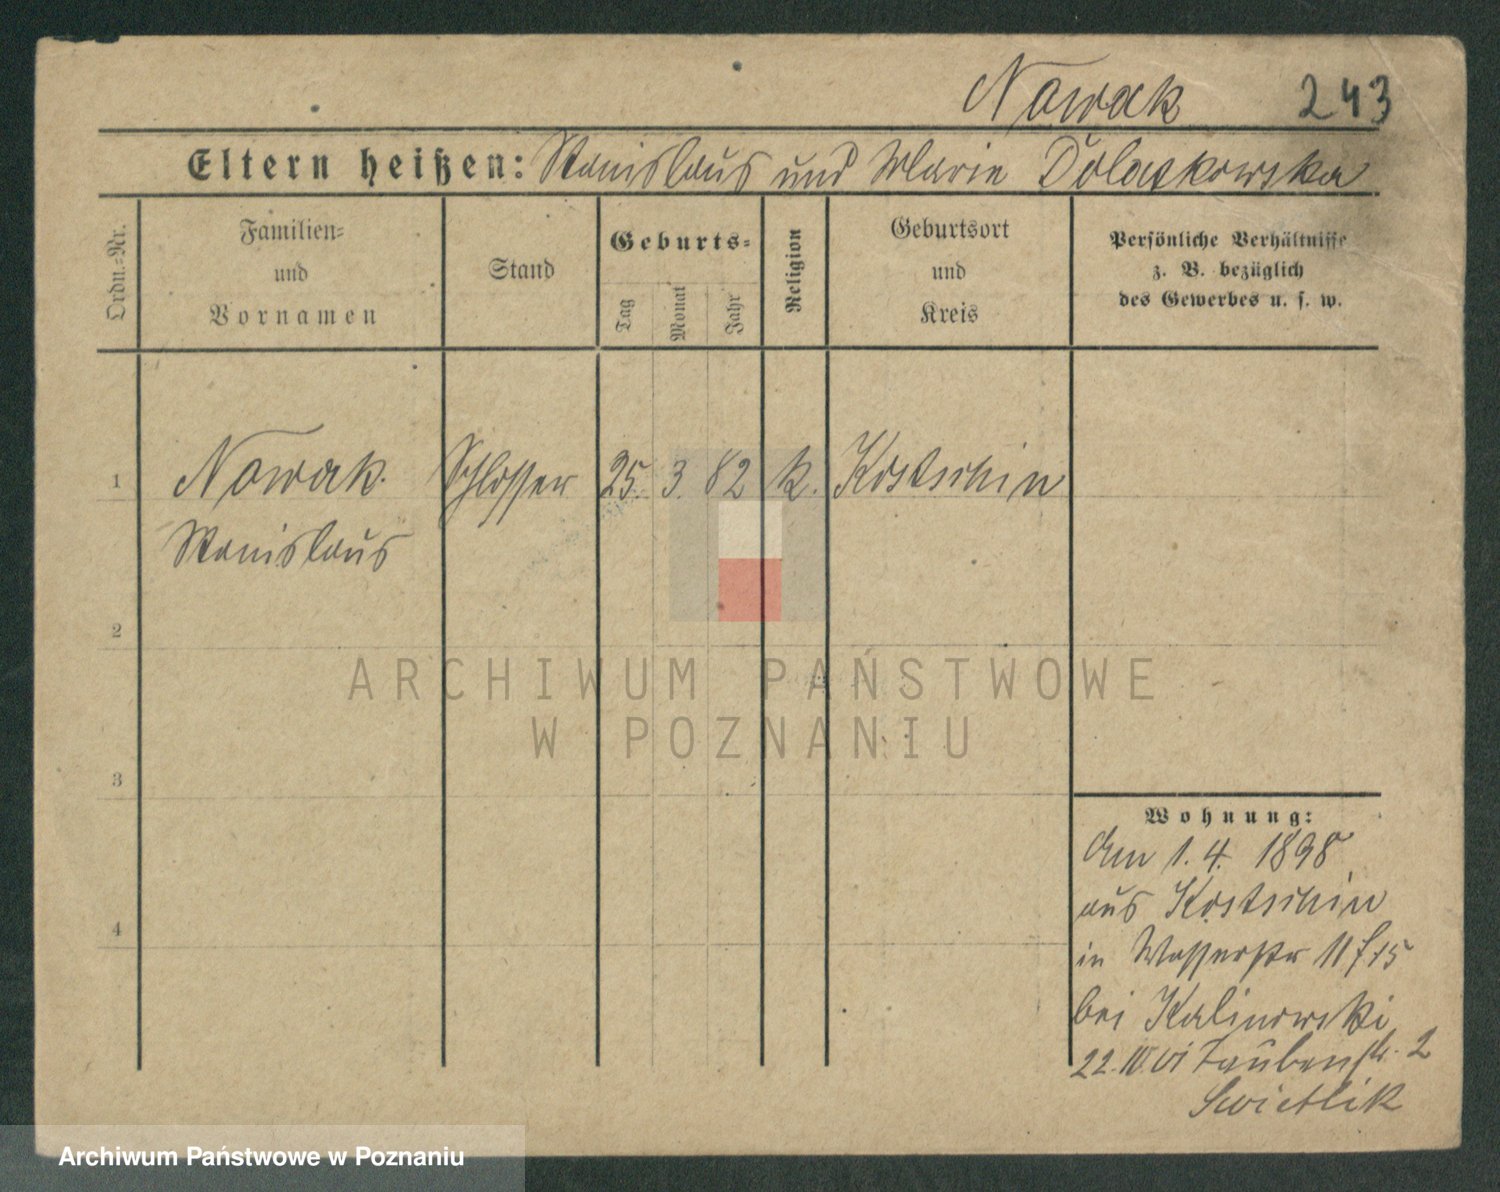 Nowak 243
Eltern heißen: Stanislaus und Marie Dolaskowska
Ordn.-Nr.
Familien-
und
Vornamen
Stand
Geburts-
Tag
Monat
Jahr
Religion
Geburtsort
und
Kreis
Persönliche Verhältnisse
z. B. bezüglich
des Gewerbes u. s. w.
1 Nowak. Schlosser 25. 3. 82 k. Kostschin
Stanislaus
2
3
4
Wohnung:
Am 1. 4. 1898
aus Kostschin
in Wasserstr 11
bei Kalinowski
22. IV. 01 Taubenstr. 2
Swietlik
ARCHIWUM PAŃSTWOWE
W POZNANIU
Archiwum Państwowe w Poznaniu